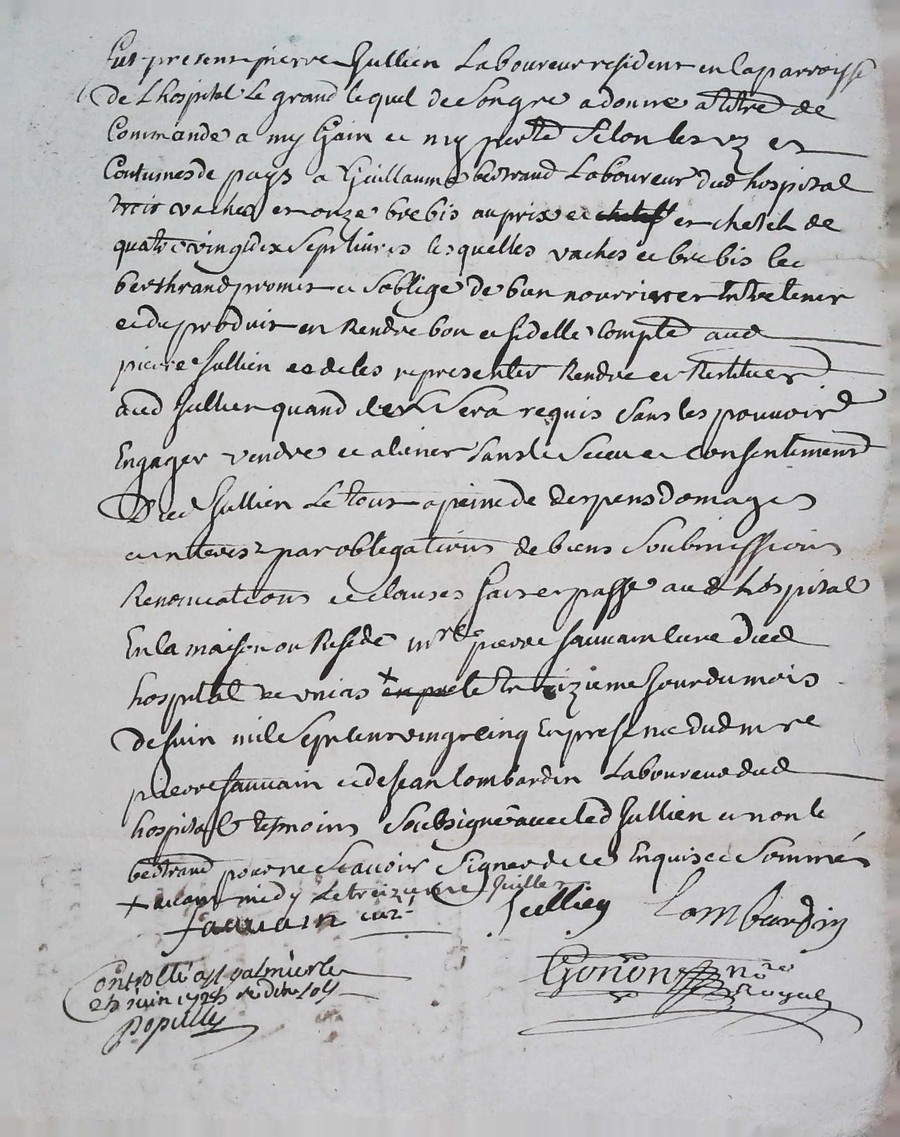 fut present pierre Jullien Laboureur resident en la parroisse
de Lhospital Le grand lequel de son gre a donné a titre de
Commande a my Gain et my perte Selon les uz et
Coutumes de pays a Guillaume bertrand Laboureur dud hospital
trois vaches et onze brebis au prix et chetel et chetel de
quatre vingt dix Sept livres lesquelles vaches et brebis led
berthrand promet et Soblige de bien nourrir et Entretener
et du produit en Rendre bon et fidelle Compte aud
pierre Jullien et de les representer Rendre et Restituer
aud Jullien quand Sera requis Sans les pouvoir
Engager vendre et aliener Sans le Sceu et Consentement
Dud Jullien Le tout a peine de despens domages
et interes par obligations de biens Soubmissions
Renonciations et clauses fait et passé aud hospital
En la maison ou Reside mre pierre Sauvain Curé dud
hospital + le treizieme Jour du mois
de Juin mil Sept cent vingt cinq En presence dud mre
pierre Sauvain et de Jean Lombardin Laboureur dud
hospital temoins Soubsignes avec led Jullien et non le
bertrand pour ne Scavoir Signer de ce Enquis et Sommés
+ avant midy Le treizieme Juillet
Sauvain curé Jullien Lombardin
Controllé a St galmier le
25 juin 1725 Gonon nore
popully Royal